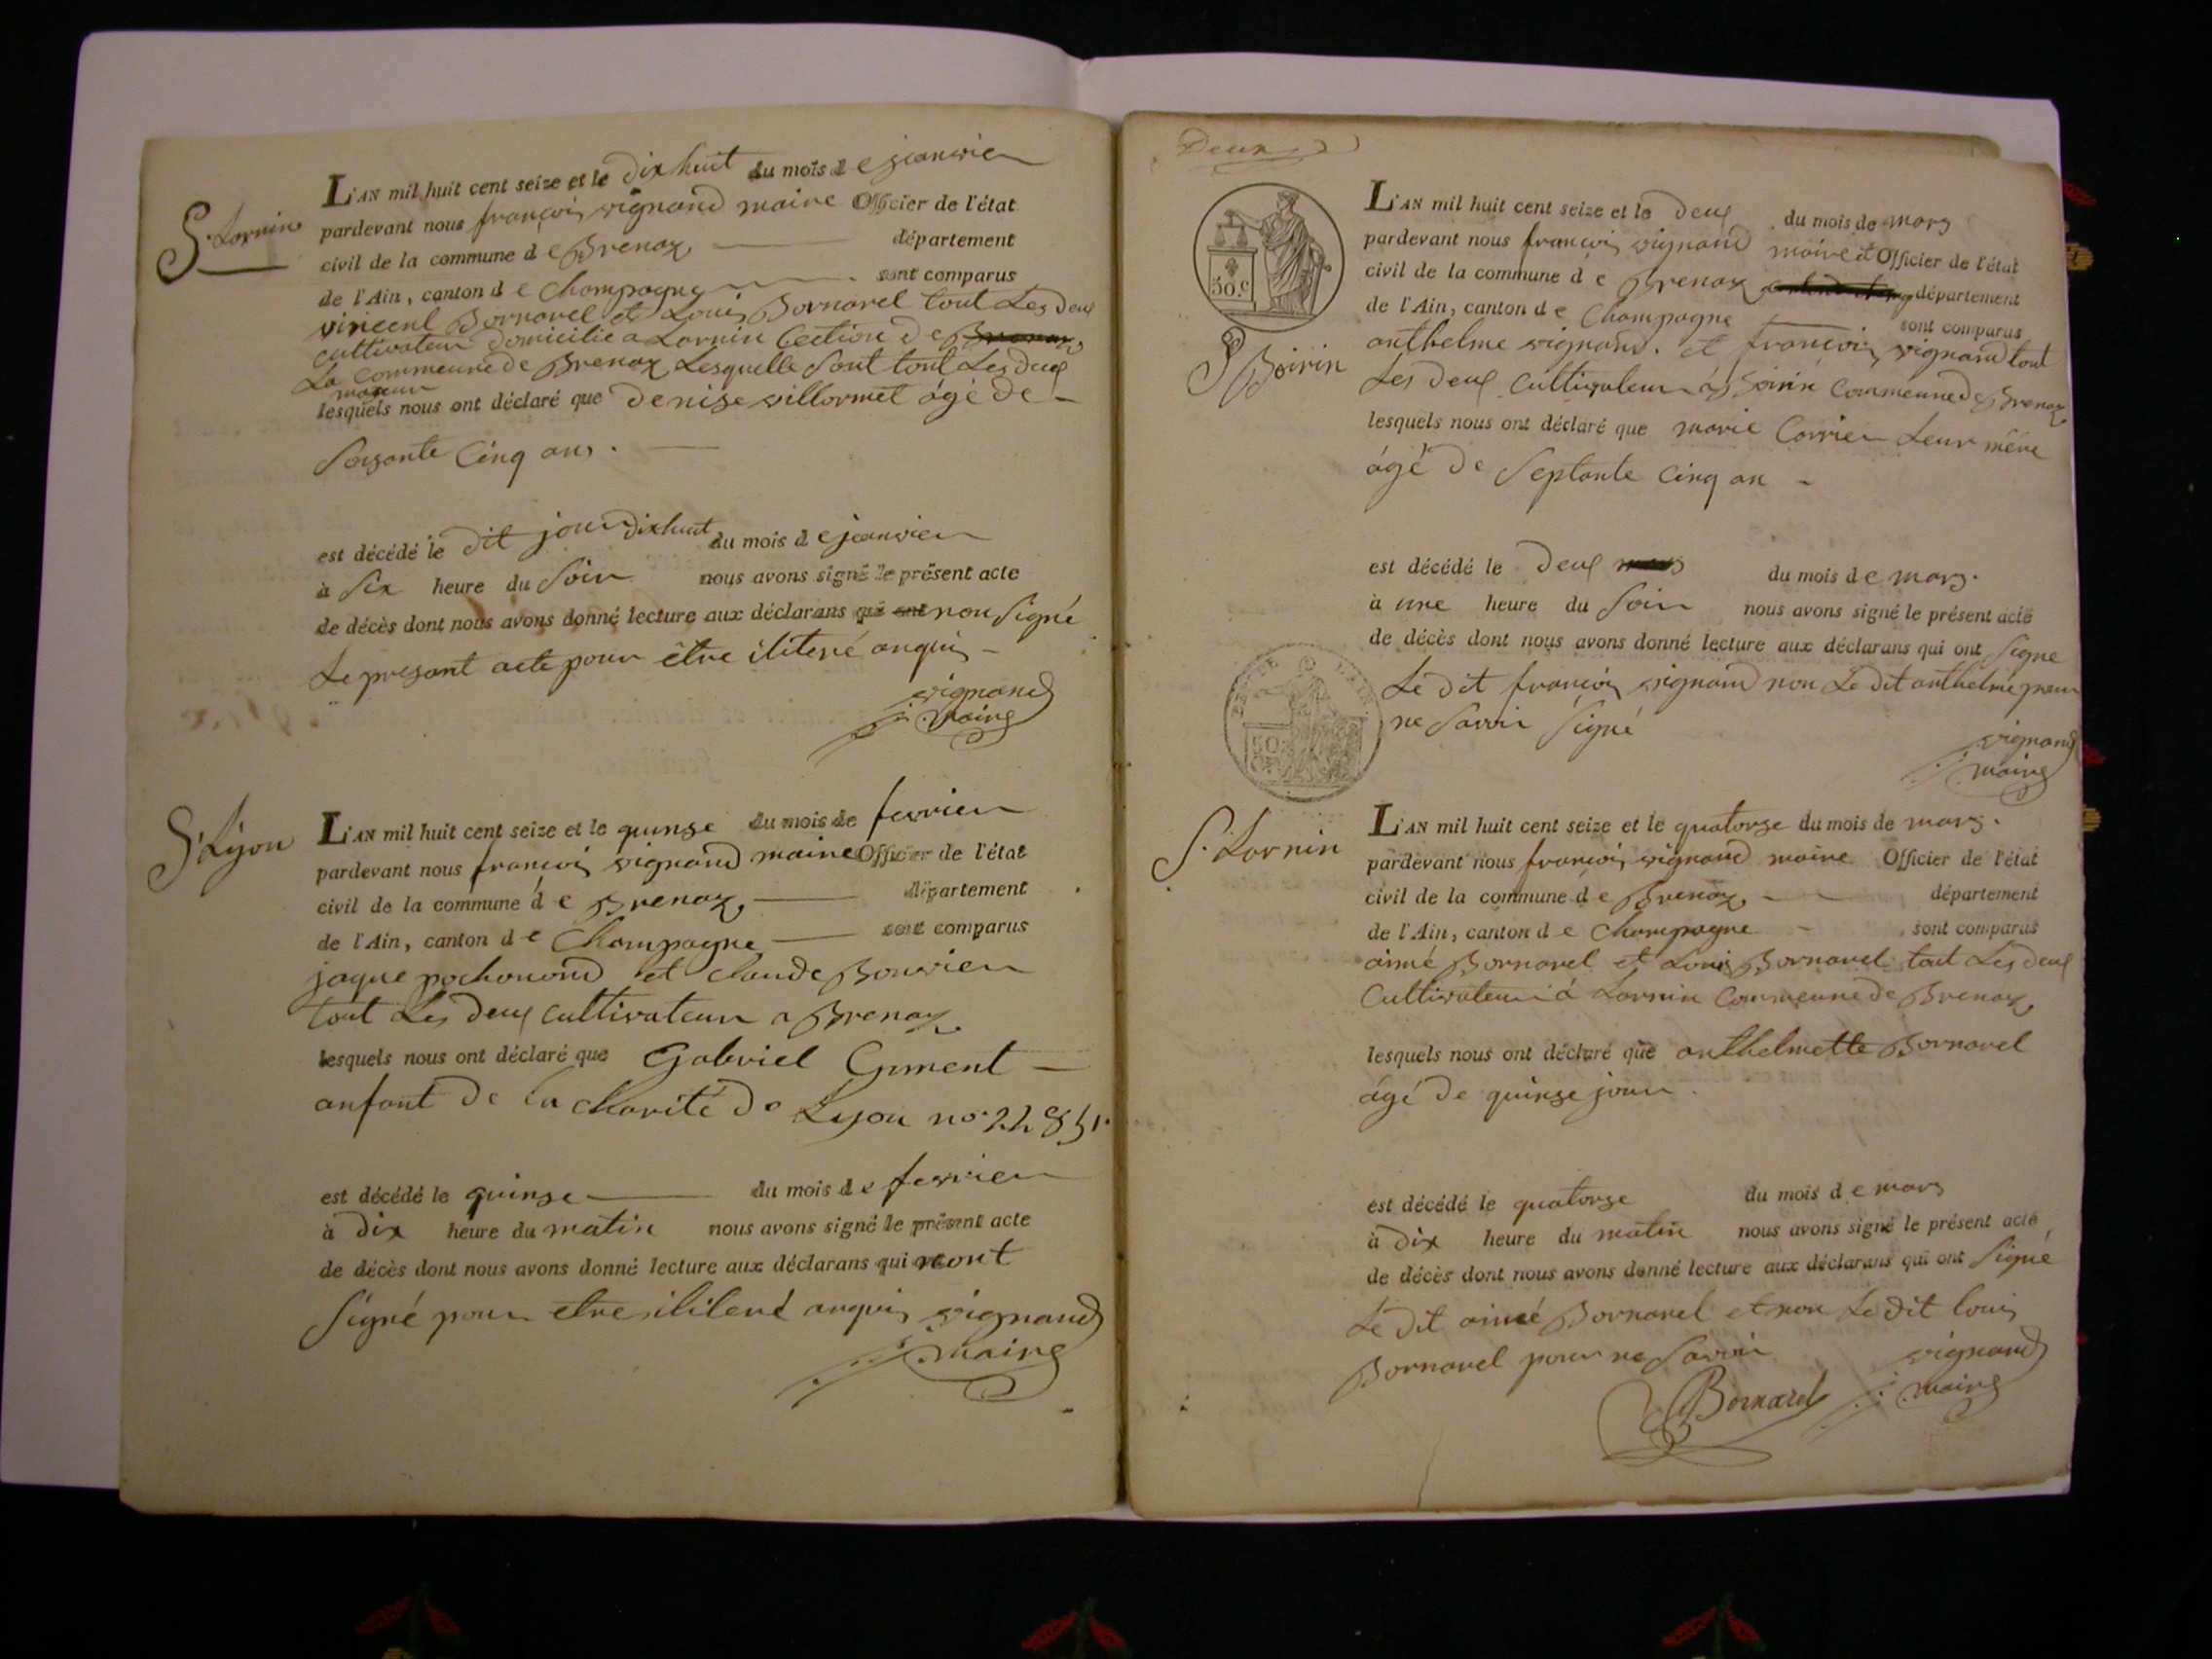 L'AN mil huit cent seize et le dix huit du mois de jeanvier
S. Lornin
pardevant nous françois vignand maire Officier de l'état
civil de la commune de Brenaz département
de l'Ain, canton de Champagne sont comparus
vincent Bornarel et Louis Bornarel tout Les deux
cultivateur domicilié a Lornin Section de Brenaz
La commeune de Brenaz Lesquelle sont tout Les deux
majeur
lesquels nous ont déclaré que denise villormet âgé de
Soisante Cinq ans.
est décédé le dit jour dixhuit du mois de jeanvier
à Six heure du Soir nous avons signé le présent acte
de décès dont nous avons donné lecture aux déclarans qui ont non Signé
Le present acte pour être iliteré anquis
vignand
maire
S. Lyon
L'AN mil huit cent seize et le quinse du mois de fevrier
pardevant nous françois vignand maire Officier de l'état
civil de la commune de Brenaz département
de l'Ain, canton de Champagne sont comparus
jaque pochonond et claude Bouvier
tout Les deux cultivateur a Brenaz
lesquels nous ont déclaré que Gabriel Gument
anfant de la charité de Lyon no. 22851.
est décédé le quinse du mois de fevrier
à dix heure du matin nous avons signé le présent acte
de décès dont nous avons donné lecture aux déclarans qui nont
Signé pour etre ilileré anquis vignand
maire
Deux
50.c
L'AN mil huit cent seize et le deux du mois de mars
pardevant nous françois vignand maire et Officier de l'état
civil de la commune de Brenaz département
de l'Ain, canton de Champagne sont comparus
S Boirin
anthelme vignand. et françois vignand tout
Les deux cultivateur à Boirin Commeune de Brenaz
lesquels nous ont déclaré que marie Carrier Leur mère
âgé de Septante Cinq an
est décédé le deux mars du mois de mars.
à une heure du Soir nous avons signé le présent acte
de décès dont nous avons donné lecture aux déclarans qui ont Signé
Le dit françois vignand non Le dit anthelme pour
ne Savoir Signé
vignand
maire
S. Lornin
L'AN mil huit cent seize et le quatorze du mois de mars.
pardevant nous françois vignand maire Officier de l'état
civil de la commune de Brenaz département
de l'Ain, canton de Champagne sont comparus
aimé Bornarel et Louis Bornarel tout Les deux
Cultivateur à Lornin Commeune de Brenaz
lesquels nous ont déclaré que anthelmette Bornarel
âgé de quinse jour.
est décédé le quatorze du mois de mars
à dix heure du matin nous avons signé le présent acte
de décès dont nous avons donné lecture aux déclarans qui ont Signé
Le dit aimé Bornarel et non Le dit louis
Bornarel pour ne Savoir
vignand
maire
Bornarel